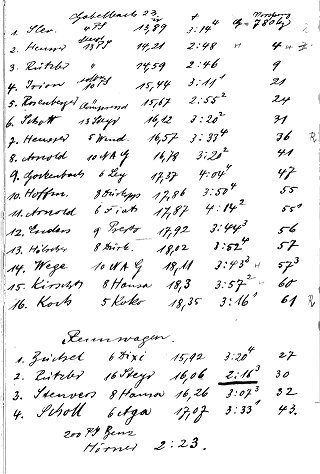 Gabelbach 23.
1. 4 PS 13,89 3:14⁴
2. Heusser 13 PS 14,21 2:48 " 4
3. Rützler " 14,59 2:46 " 9
4. Irion 10 PS 15,44 3:11¹ 21
5. Rosenberger 15,67 2:55² 24
6. Schott 13 Steyr 16,12 3:20² 31
7. Heusser 5 Wand. 16,57 3:33⁴ 36 R
8. Arnold 10 NAG 16,78 3:20² 41
9. 6 Ley 17,37 4:04⁴ 47
10. Hoffm. 8 Dürkopp 17,86 3:50⁴ 55
11. Arnold 6 Fiat 17,87 4:14² 55¹
12. Enders 9 Presto 17,92 3:44³ 56
13. Hölscher 8 Dürk. 18,02 3:52⁴ 57
14. Wege 10 NAG 18,11 3:43³ " 57³
15. 8 Hansa 18,3 3:57² 60
16. 5 Koko 18,35 3:16¹ 61 R
Rennwagen.
1. 6 Dixi 15,92 3:20⁴ 27
2. Rützler 16 Steyr 16,06 2:16³ 30
3. Stenvers 8 Hansa 16,26 3:07³ 32
4. Scholl 6 Aga 17,07 3:33¹ 43.
200 PS Benz
Hörner 2:23.